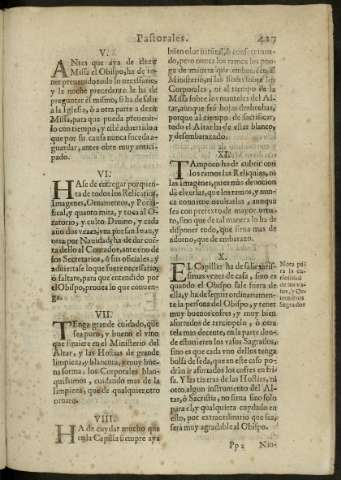 Pastorales. 427
V.
ANtes que aya de dezir
Missa el Obispo, ha de te-
ner preuenido todo lo necessario:
y la noche precedente le ha de
preguntar èl mismo, si ha de salir
a la Iglesia, ò a otra parte a dezir
Missa, para que pueda preuenirlo
con tiempo, y estè aduertido a
que por su causa nunca suceda a-
guardar, antes obre muy antici-
pado.
VI.
HAse de entregar por quenta
de todos los Relicarios,
Imagenes, Ornamentos, y Ponti-
fical, y quanto mira, y toca al O-
ratorio, y culto Diuino, y cada
año dos vezes, vna por San Iuan, y
otra por Nauidad, ha de dar cuen-
ta dello al Contador, ante vno de
los Secretarios, ò sus oficiales; y
aduiertase lo que fuere necessario,
si faltare, para que entendido por
el Obispo, prouea lo que conuen-
ga.
VII.
TEnga grande cuidado, que
sea puro, y bueno el vino
que siruiere en el Ministerio del
Altar, y las Hostias de grande
limpieza, y blancura, y muy bue-
na forma, los Corporales blan-
quissimos, cuidando mas de la
limpieza, que de qualquier otro
ornato.
VIII.
HA de cuydar mucho que
en la Capilla siempre aya
buen olor natural, ò confeccionado,
pero nunca los ramos los pon-
ga de manera que
Corporales, ni al tiempo de la
Missa sobre los manteles del Al-
tar, aunque sea hojas deshechas,
porque al tiempo de sacrificar,
todo el Altar ha de estar blanco,
y desembarazado.
IX.
TAmpoco ha de cubrir con
los ramos las Reliquias, ni
las Imagenes, pues mas deuocion
dà el verlas, que los ramos, y nun-
ca conuiene ocultarlas, aunque
sea con pretexto de mayor orna-
to, sino que de tal manera lo ha
de disponer todo, que sirua mas
de adorno, que de embarazo.
X.
EL Capiller ha de salir rarissi-
simas vezes de casa, sino es
quando el Obispo sale fuera de
ella, y ha de seguir ordinariamen-
te la persona del Obispo, y tener
muy buenos cofres, y muy bien
aforrados de terciopelo, ò otra
tela mas decente, en la parte don-
de estuuieren los vasos Sagrados,
sino es que cada vno dellos tenga
bolsa de seda, que en este caso po-
dràn ir aforrados los cofres en fri-
sa. Y las tixeras de las Hostias, ni
otro algun instrumento del Al-
tar, ò Sacristia, no sirua sino solo
para el, y qualquiera cuydado en
esto, por extraordinario que sea,
serà muy agradable al Obispo.
Nota pa-
ra la cu-
riosidad
de los va-
sos, y Or-
namentos
Sagrados
Pp 2 Nin-